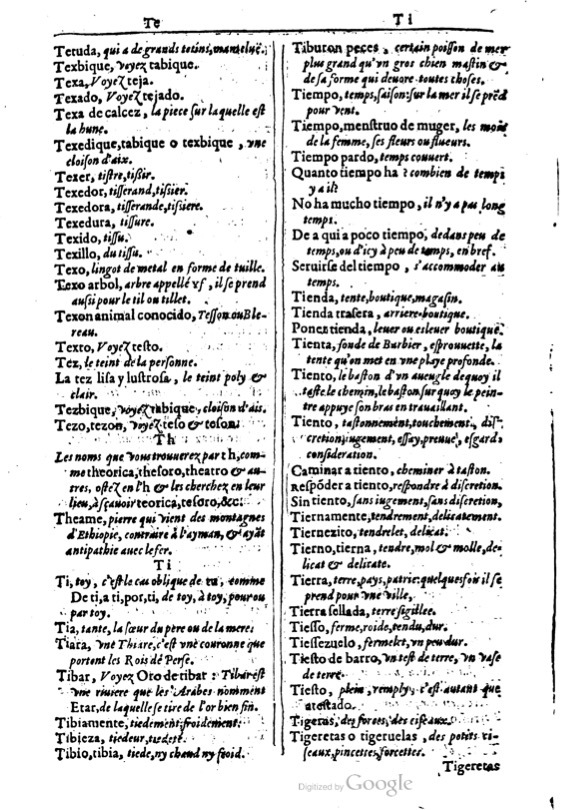 Te
Tetuda, qui a de grands tetins, mamelue.
Texbique, voyez tabique.
Texa, Voyez teja.
Texado, Voyez tejado.
Texa de calcez, la piece sur laquelle est
la hune.
Texedique, tabique o texbique, vne
cloison d'aix.
Texer, tistre, tißir.
Texedor, tisserand, tißier.
Texedora, tisserande, tißiere.
Texedura, tissure.
Texido, tissu.
Texillo, du tissu.
Texo, lingot de metal en forme de tuille.
Texo arbol, arbre appellé xf, il se prend
aussi pour le til ou tillet.
Texon animal conocido, Tesson ou Ble-
reau.
Texto, Voyez testo.
Tez, le teint de la personne.
La tez lisa y lustrosa, le teint poly &
clair.
Tezbique, voyez tabique, cloison d'ais.
Tezo, tezon, voyez teso & teson.
Th
Les noms que vous trouuerez par th, com-
me theorica, thesoro, theatro & au-
tres, ostez en l'h & les cherchez en leur
lieu, à sçauoir teorica, tesoro, &c.
Theame, pierre qui vient des montagnes
d'Ethiopie, contraire à l'ayman, & ayãt
antipathie auec le fer.
Ti
Ti, toy, c'est le cas oblique de tu, comme
De ti, a ti, por, ti, de toy, à toy, pour ou
par toy.
Tia, tante, la sœur du pere ou de la mere.
Tiara, vne Thiare, c'est vne couronne que
portent les Rois de Perse.
Tibar, Voyez Oro de tibar: Tibar est
vne riuiere que les Arabes nomment
Etar, de laquelle se tire de l'or bien fin.
Tibiamente, tiedement, froidement.
Tibieza, tiedeur, tiedeté.
Tibio, tibia, tiede, ny chaud ny froid.
Ti
Tiburon peces, certain poisson de mer
plus grand qu'vn gros chien mastin &
de sa forme qui deuore toutes choses.
Tiempo, temps, saison: sur la mer il se prẽd
pour vent.
Tiempo, menstruo de muger, les mois
de la femme, ses fleurs ou flueurs.
Tiempo pardo, temps couuert.
Quanto tiempo ha? combien de temps
y a il?
No ha mucho tiempo, il n'y a pas long
temps.
De a qui a poco tiempo, dedans peu de
temps, ou d'icy à peu de temps, en bref.
Seruirse del tiempo, s'accommoder au
temps.
Tienda, tente, boutique, magasin.
Tienda trasera, arriere-boutique.
Poner tienda, leuer ou esleuer boutique.
Tienta, sonde de Barbier, esprouuette, la
tente qu'on met en vne playe profonde.
Tiento, le baston d'vn aueugle dequoy il
taste le chemin, le baston sur quoy le pein-
tre appuye son bras en trauaillant.
Tiento, tastonnement, touchement, dis-
cretion, iugement, essay, preuue, esgard,
consideration.
Caminar a tiento, cheminer à taston.
Respõder a tiento, respondre à discretion.
Sin tiento, sans iugement, sans discretion,
Tiernamente, tendrement, delicatement.
Tiernezito, tendrelet, delicat.
Tierno, tierna, tendre, mol & molle, de-
licat & delicate.
Tierra, terre, pays, patrie: quelquesfois il se
prend pour vne ville,
Tierra sellada, terre sigillee.
Tiesso, ferme, roide, tendu, dur.
Tiessezuelo, fermelet, vn peu dur.
Tiesto de barro, vn test de terre, vn vase
de terre.
Tiesto, plein, remply, c'est autant que
atestado.
Tigeras, des forces, des ciseaux.
Tigeretas o tigeruelas, des petits ci-
seaux, pincettes, forcettes.
Tigeretas
Digitized by Google